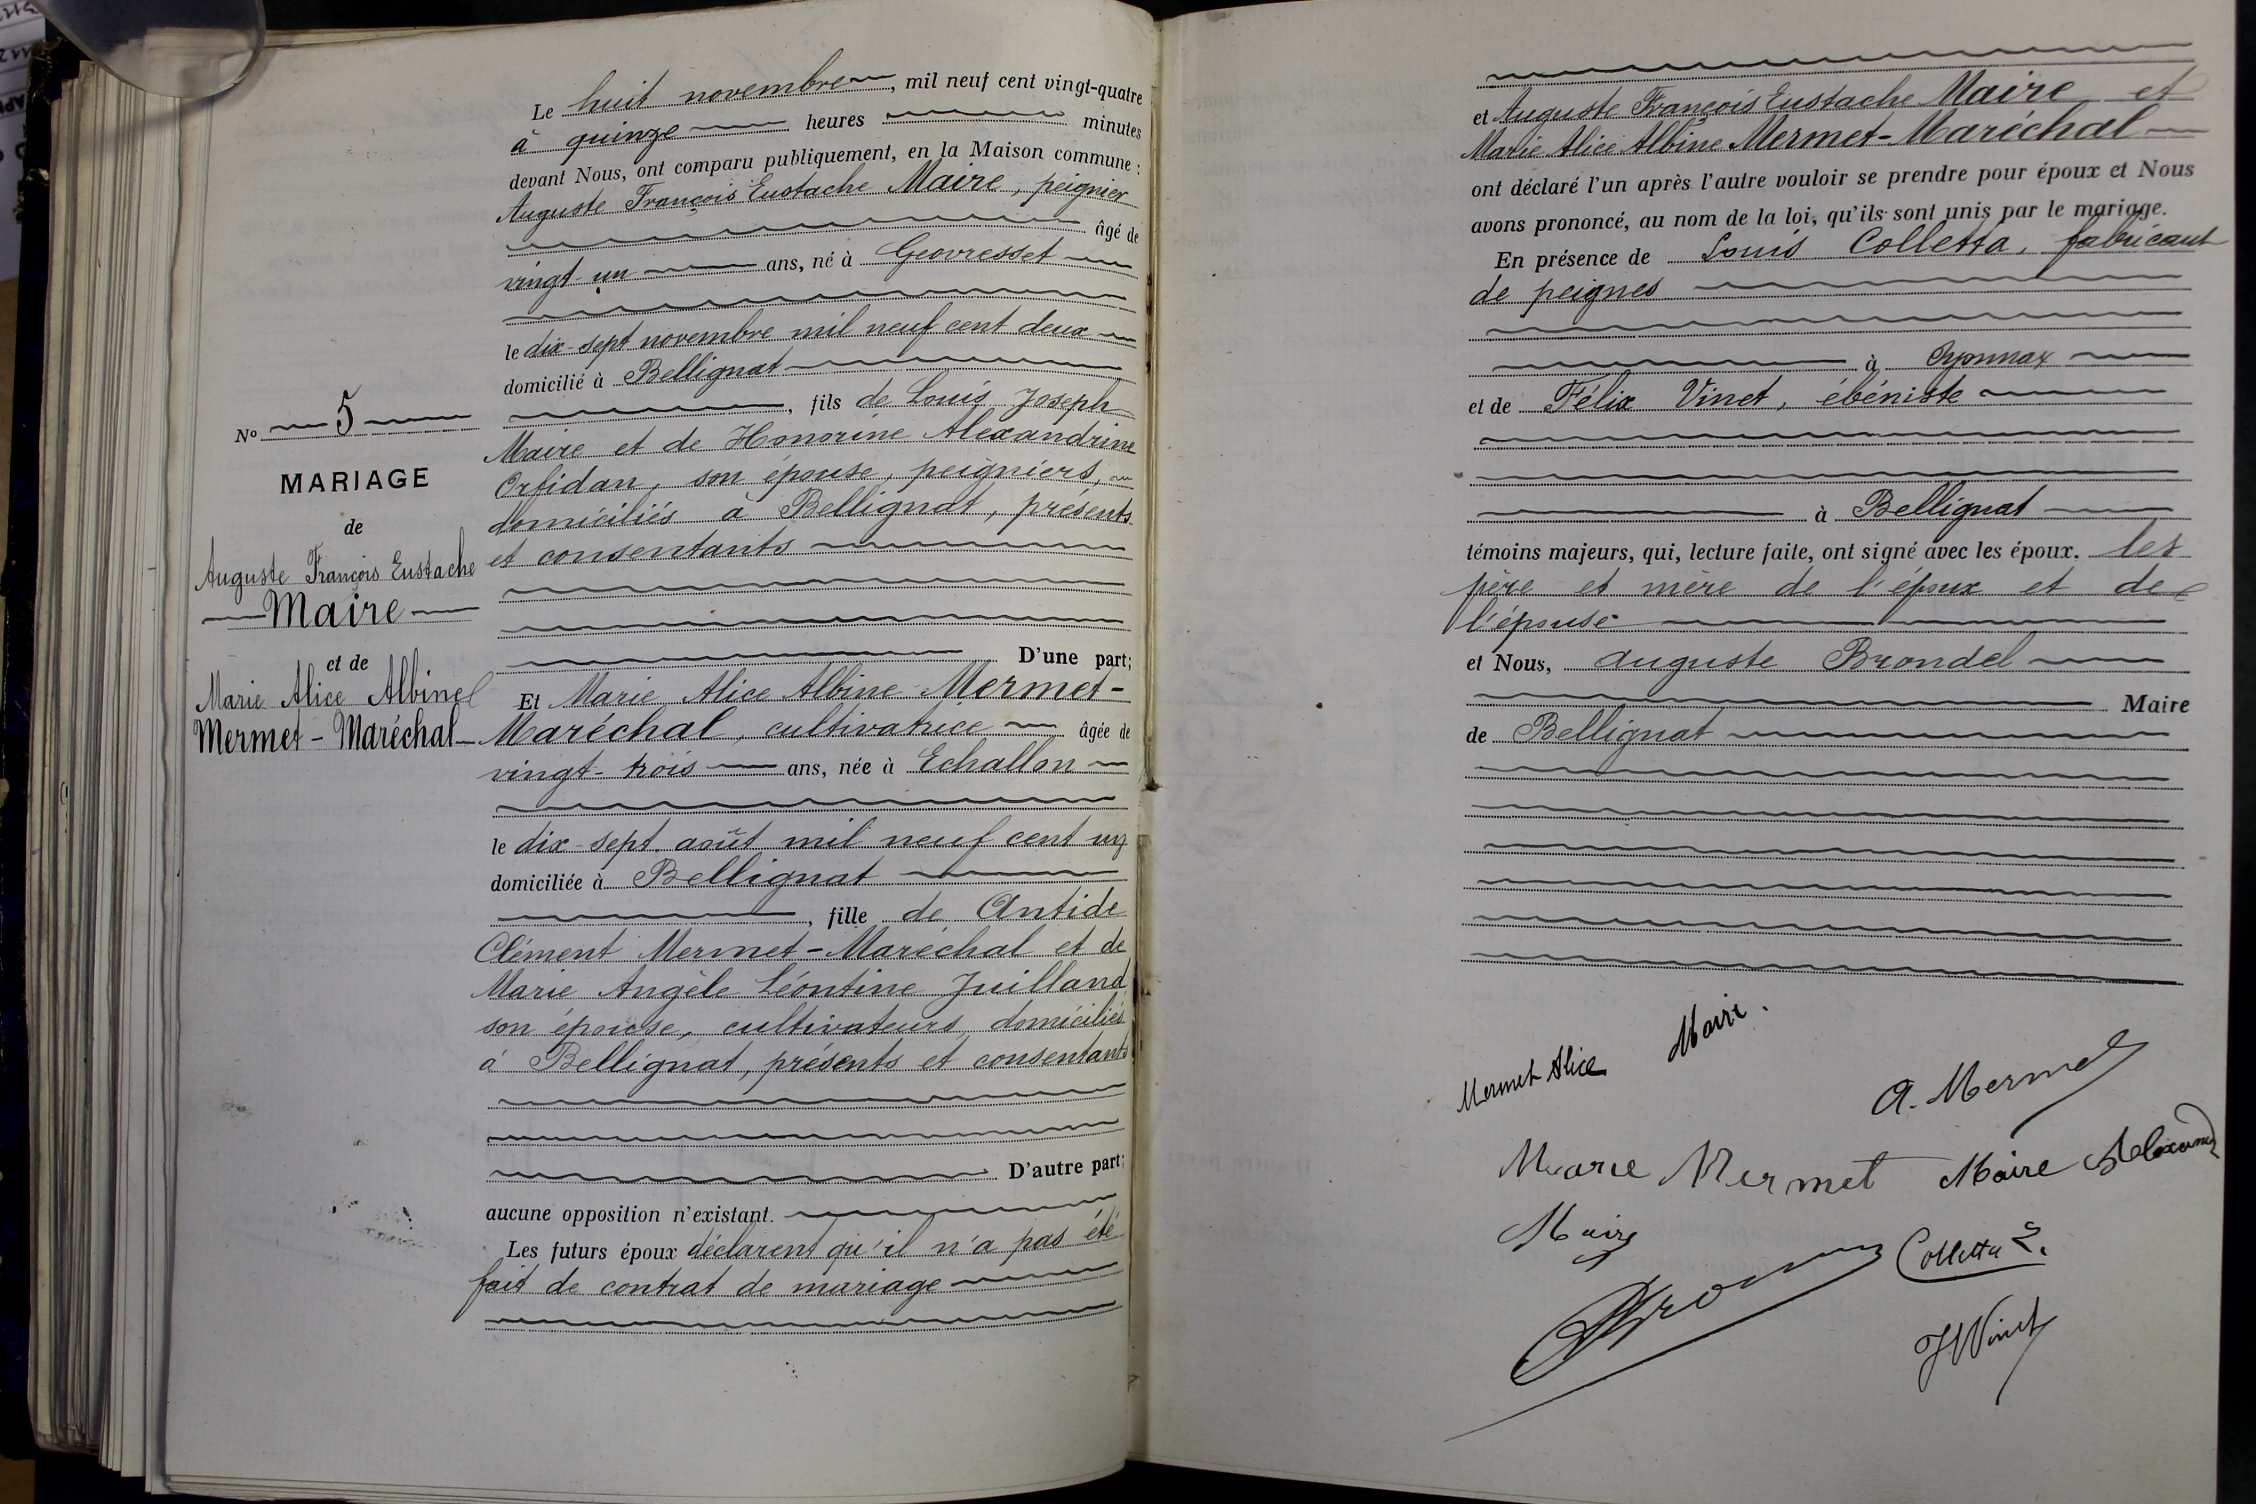 N° 5
MARIAGE
de
Auguste François Eustache
Maire
et de
Marie Alice Albine
Mermet-Maréchal
Le huit novembre, mil neuf cent vingt-quatre
à quinze heures minutes
devant Nous, ont comparu publiquement, en la Maison commune :
Auguste François Eustache Maire, peignier
âgé de
vingt-un ans, né à Geovresset
le dix-sept novembre mil neuf cent deux
domicilié à Bellignat
, fils de Louis Joseph
Maire et de Honorine Alexandrine
Orfidan, son épouse, peigniers,
domiciliés à Bellignat, présents
et consentants
D'une part;
Et Marie Alice Albine Mermet-
Maréchal, cultivatrice âgée de
vingt-trois ans, née à Echallon
le dix-sept août mil neuf cent un
domiciliée à Bellignat
, fille de Antide
Clément Mermet-Maréchal et de
Marie Angèle Léontine Juilland
son épouse, cultivateurs, domiciliés
à Bellignat, présents et consentants
D'autre part;
aucune opposition n'existant.
Les futurs époux déclarent qu'il n'a pas été
fait de contrat de mariage
et Auguste François Eustache Maire et
Marie Alice Albine Mermet-Maréchal
ont déclaré l'un après l'autre vouloir se prendre pour époux et Nous
avons prononcé, au nom de la loi, qu'ils sont unis par le mariage.
En présence de Louis Colletta, fabricant
de peignes
à Oyonnax
et de Félix Vinet, ébéniste
à Bellignat
témoins majeurs, qui, lecture faite, ont signé avec les époux. les
père et mère de l'époux et de
l'épouse
et Nous, Auguste Brondel
Maire
de Bellignat
Mermet Alice Maire.
A. Mermet
Marie Mermet Maire
Maire
Colletta L.